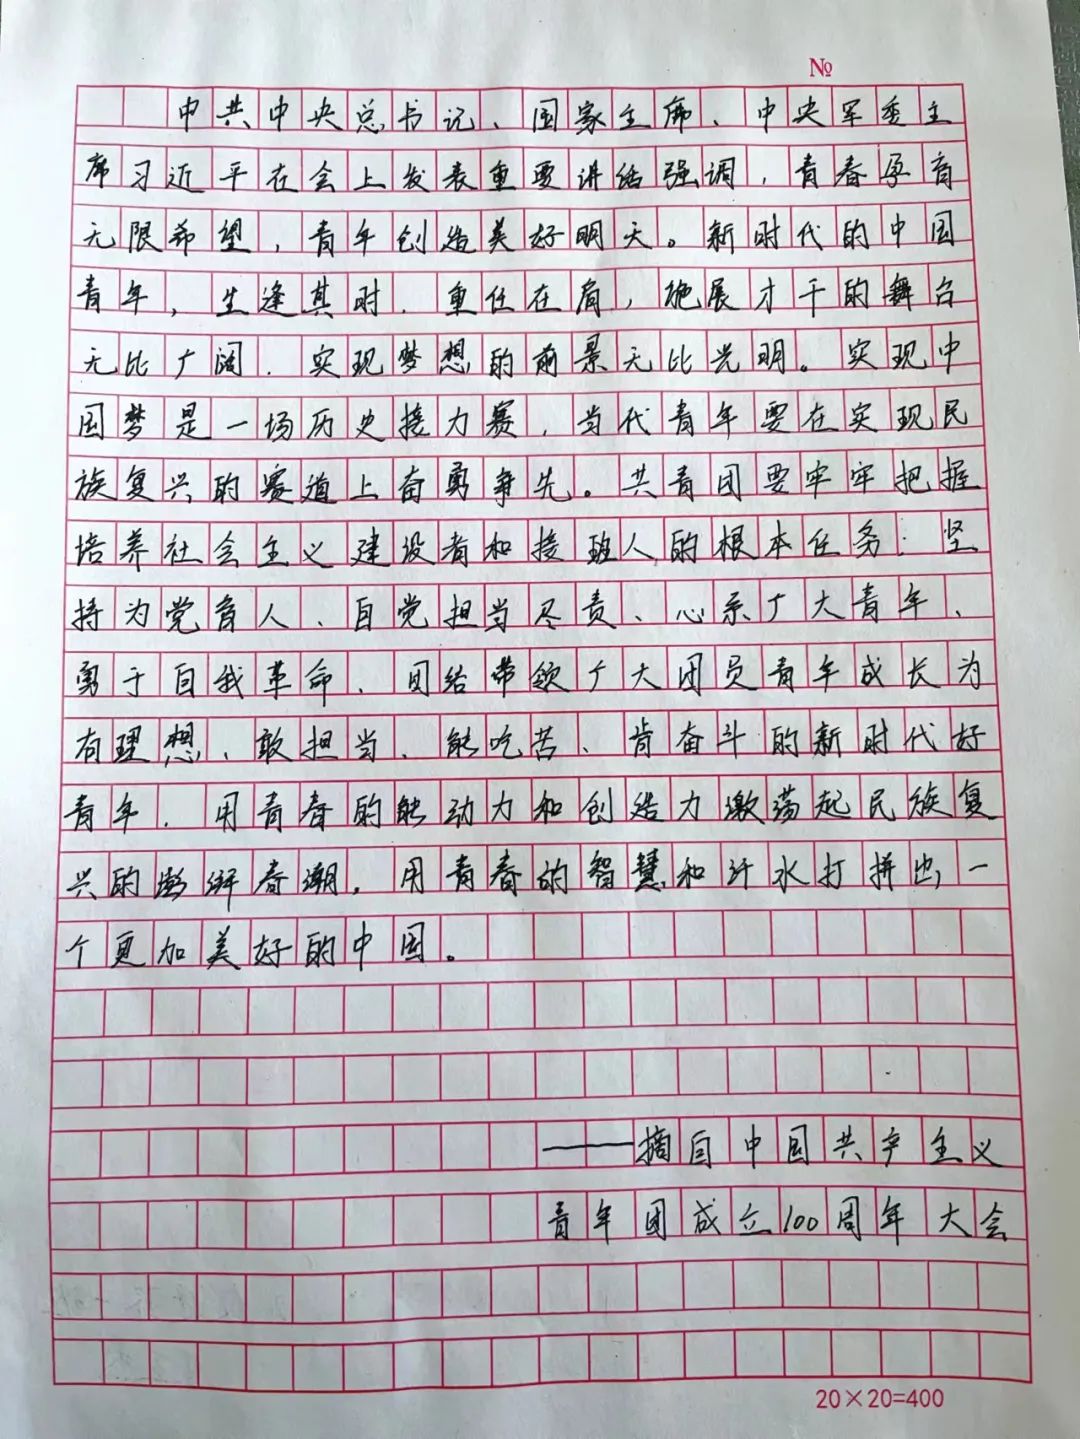 №
中共中央总书记、国家主席、中央军委主
席习近平在会上发表重要讲话强调，青春孕育
无限希望，青年创造美好明天。新时代的中国
青年，生逢其时、重任在肩，施展才干的舞台
无比广阔，实现梦想的前景无比光明。实现中
国梦是一场历史接力赛，当代青年要在实现民
族复兴的赛道上奋勇争先。共青团要牢牢把握
培养社会主义建设者和接班人的根本任务：坚
持为党育人、自觉担当尽责、心系广大青年、
勇于自我革命、团结带领广大团员青年成长为
有理想、敢担当、能吃苦、肯奋斗的新时代好
青年，用青春的能动力和创造力激荡起民族复
兴的澎湃春潮，用青春的智慧和汗水打拼出一
个更加美好的中国。
——摘自中国共产主义
青年团成立100周年大会
20×20=400